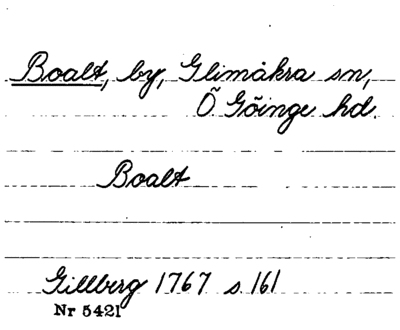 Boalt, by, Glimåkra sn,
Ö Göinge hd.
Boalt
Gillberg 1767 s. 161
Nr 5421